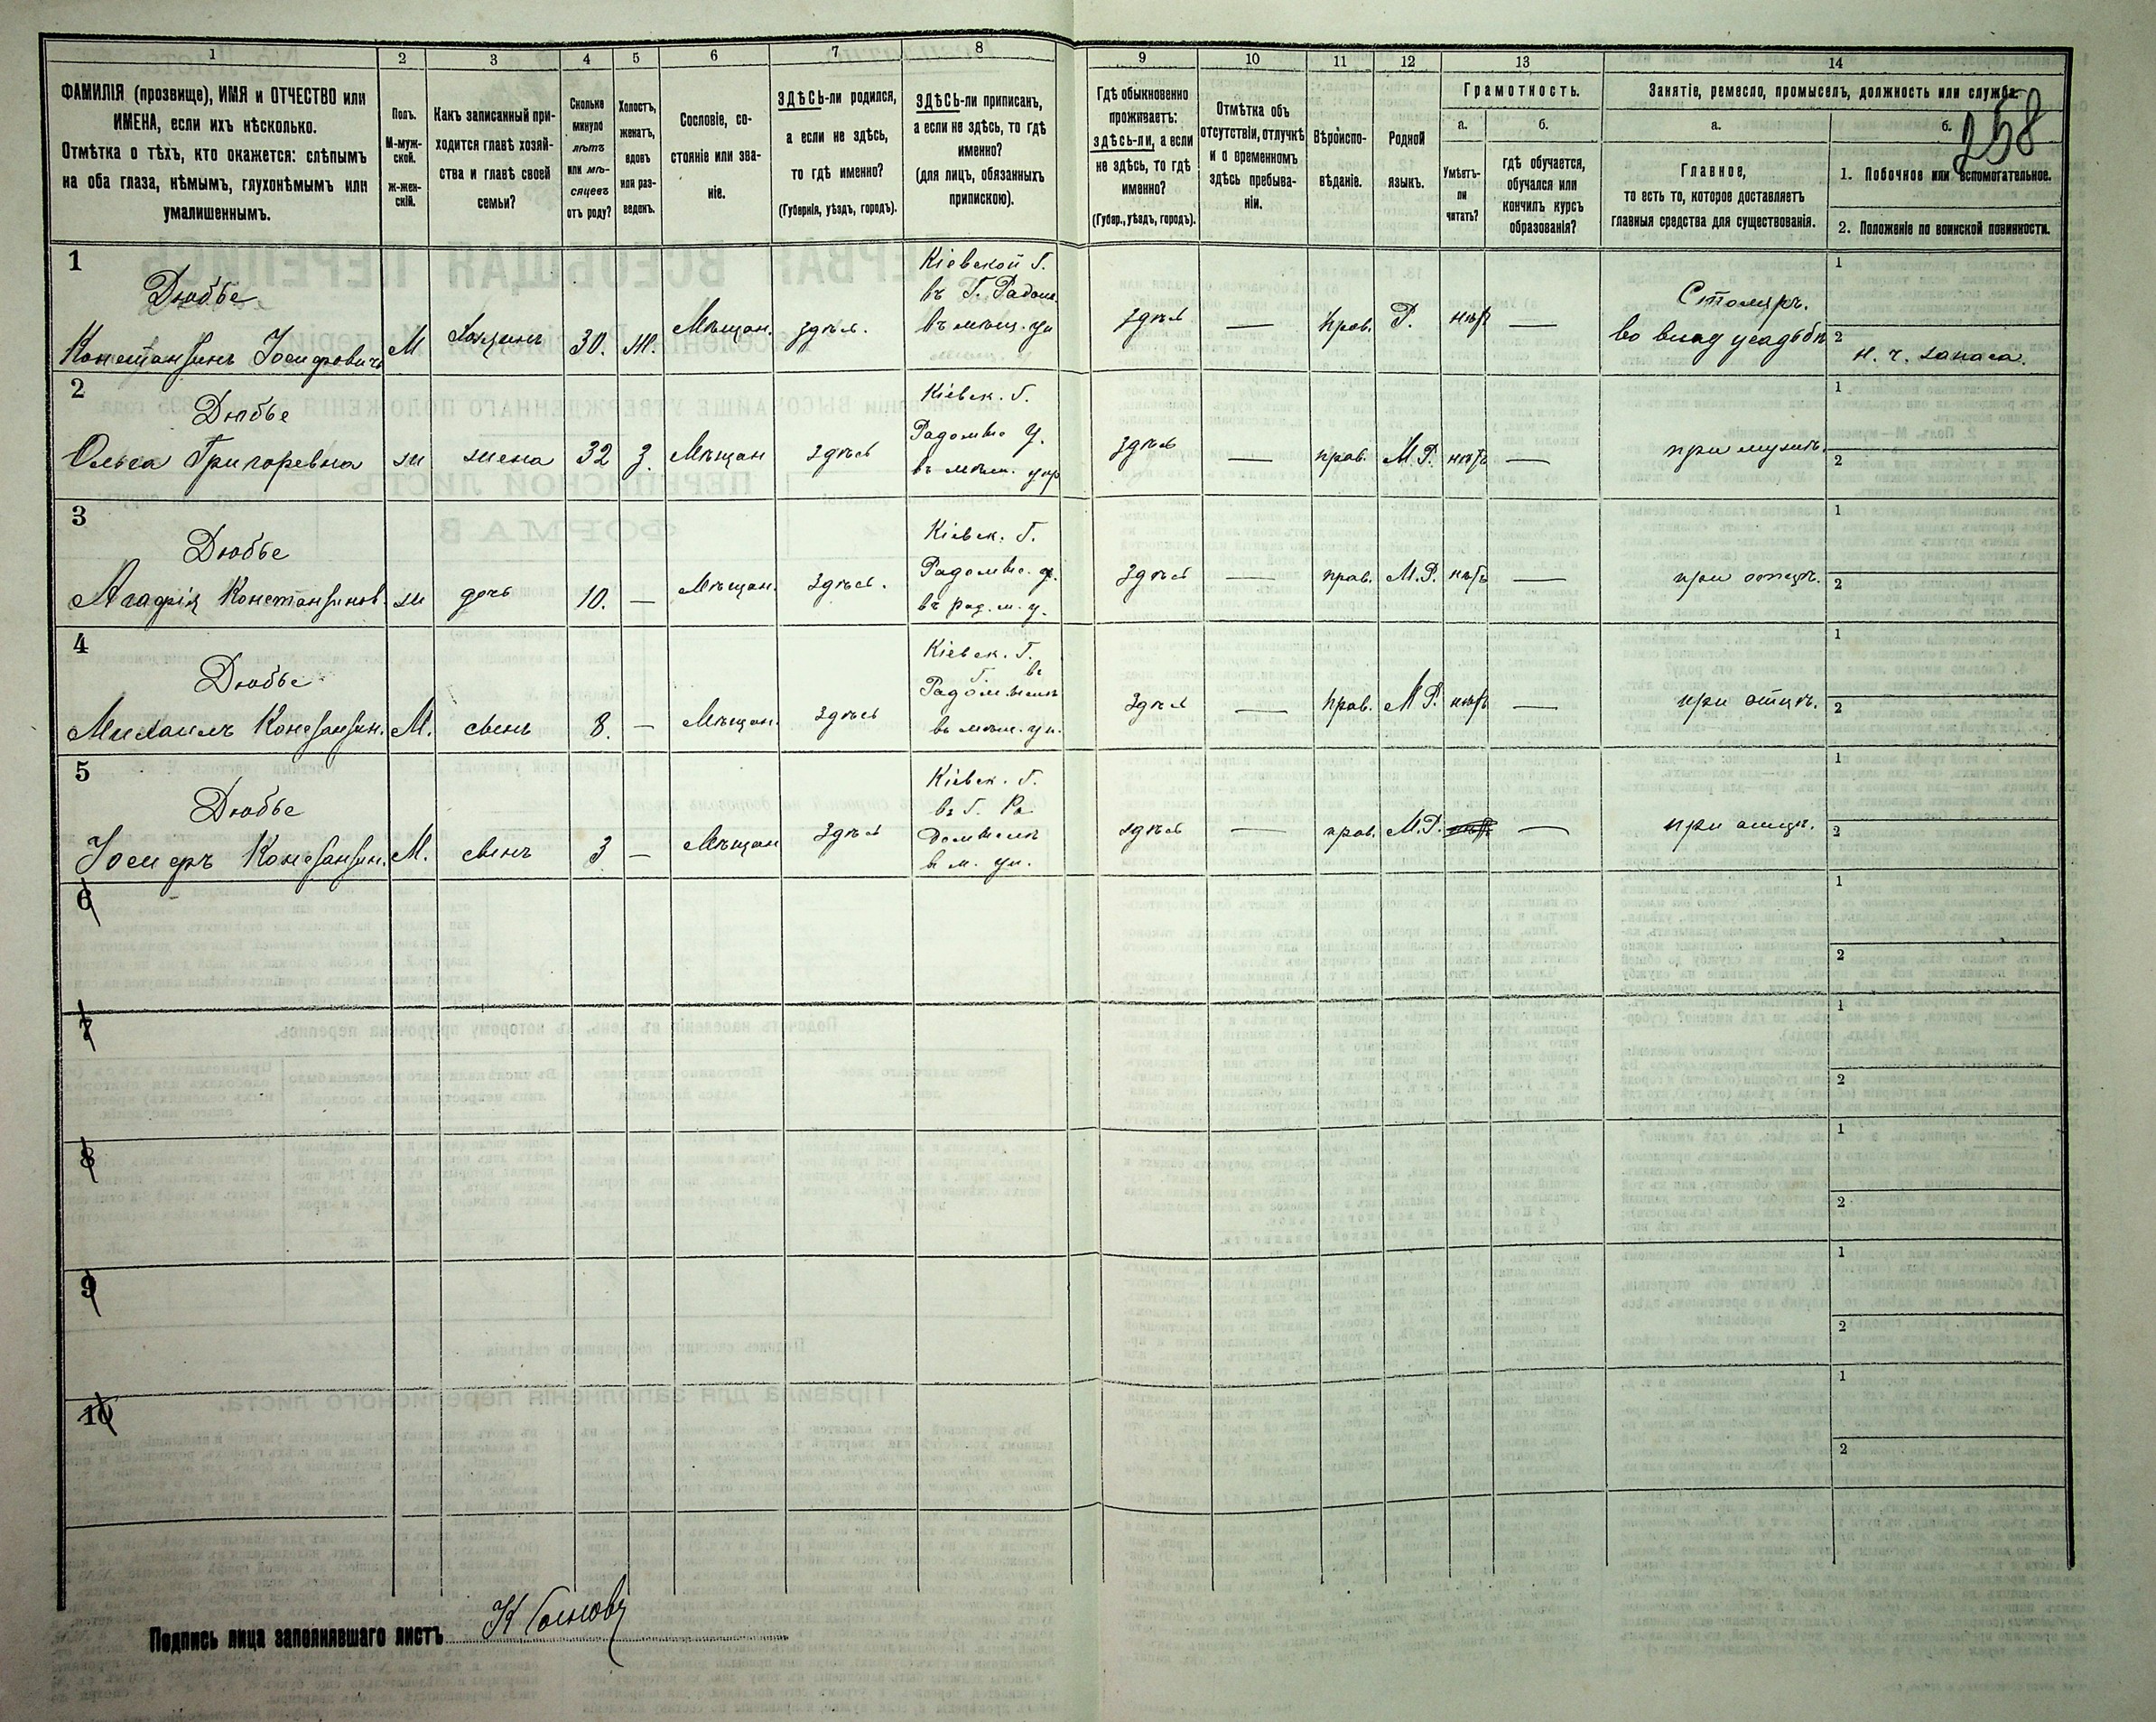 1
2
3
4
5
6
7
8
9
10
11
12
13
14
ФАМИЛІЯ (прозвище), ИМЯ и ОТЧЕСТВО или
ИМЕНА, если ихъ нѣсколько.
Отмѣтка о тѣхъ, кто окажется: слѣпымъ
на оба глаза, нѣмымъ, глухонѣмымъ или
умалишеннымъ.
Полъ.
М-муж-
ской.
ж-жен-
скій.
Какъ записанный при-
ходится главѣ хозяй-
ства и главѣ своей
семьи?
Сколько
минуло
лѣтъ
или мѣ-
сяцевъ
отъ роду?
Холостъ,
женатъ,
вдовъ
или раз-
веденъ.
Сословіе, со-
стояніе или зва-
ніе.
ЗДѢСЬ-ли родился,
а если не здѣсь,
то гдѣ именно?
(Губернія, уѣздъ, городъ).
ЗДѢСЬ-ли приписанъ,
а если не здѣсь, то гдѣ
именно?
(для лицъ, обязанныхъ
припискою).
Гдѣ обыкновенно
проживаетъ:
здѣсь-ли, а если
не здѣсь, то гдѣ
именно?
(Губер., уѣздъ, городъ).
Отмѣтка объ
отсутствіи, отлучкѣ
и о временномъ
здѣсь пребыва-
ніи.
Вѣроиспо-
вѣданіе.
Родной
языкъ.
Грамотность.
а.
б.
Умѣетъ-
ли
читать?
гдѣ обучается,
обучался или
кончилъ курсъ
образованія?
Занятіе, ремесло, промыселъ, должность или служба.
258
а.
б.
Главное,
то есть то, которое доставляетъ
главныя средства для существованія.
1. Побочное или вспомогательное.
2. Положеніе по воинской повинности.
1
Дюбье
Константинъ Іосифовичъ
М
Хозяинъ
30.
Ж.
Мѣщан.
здѣсь.
Кіевской Г.
въ Г. Радом.
въ мѣщ. уп
здѣсь
—
прав.
Р.
нѣтъ
—
Столяръ.
во влад усадьбѣ
1
2
н. ч. запаса.
2
Дюбье
Ольга Григоревна
ж
жена
32
З.
Мѣщан
здѣсь
Кіевск. Г.
въ мѣщ. упр
здѣсь
—
прав.
М.Р.
нѣтъ
—
при мужѣ.
1
2
3
Дюбье
Агафія Константинов.
ж
дочь
10.
—
Мѣщан.
здѣсь.
Кіевск. Г.
въ рад. м. у.
здѣсь
—
прав.
М.Р.
нѣтъ
—
при отцѣ.
1
2
4
Дюбье
Михаилъ Константин.
М.
сынъ
8.
—
Мѣщан.
здѣсь
Кіевск. Г.
въ мѣщ. уп.
здѣсь
—
прав.
М Р.
нѣтъ
—
при отцѣ.
1
2
5
Дюбье
Іосифъ Константин.
М.
сынъ
3
—
Мѣщан
здѣсь
Кіевск. Г.
въ Г. Ра
домысль
в м. уп.
здѣсь
—
прав.
М.Р.
—
при отцѣ.
1
2
6
1
2
7
1
2
8
1
2
9
1
2
10
1
2
Подпись лица заполнявшаго листъ